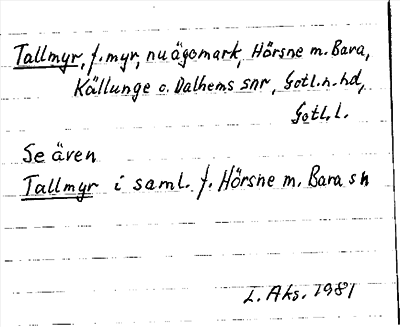 Tallmyr, f. myr, nu ägomark, Hörsne m. Bara,
Källunge o. Dalhems snr, Gotl. n. hd,
Gotl. l.
Se även
Tallmyr i saml. f. Hörsne m. Bara sn
L. Aks. 1981